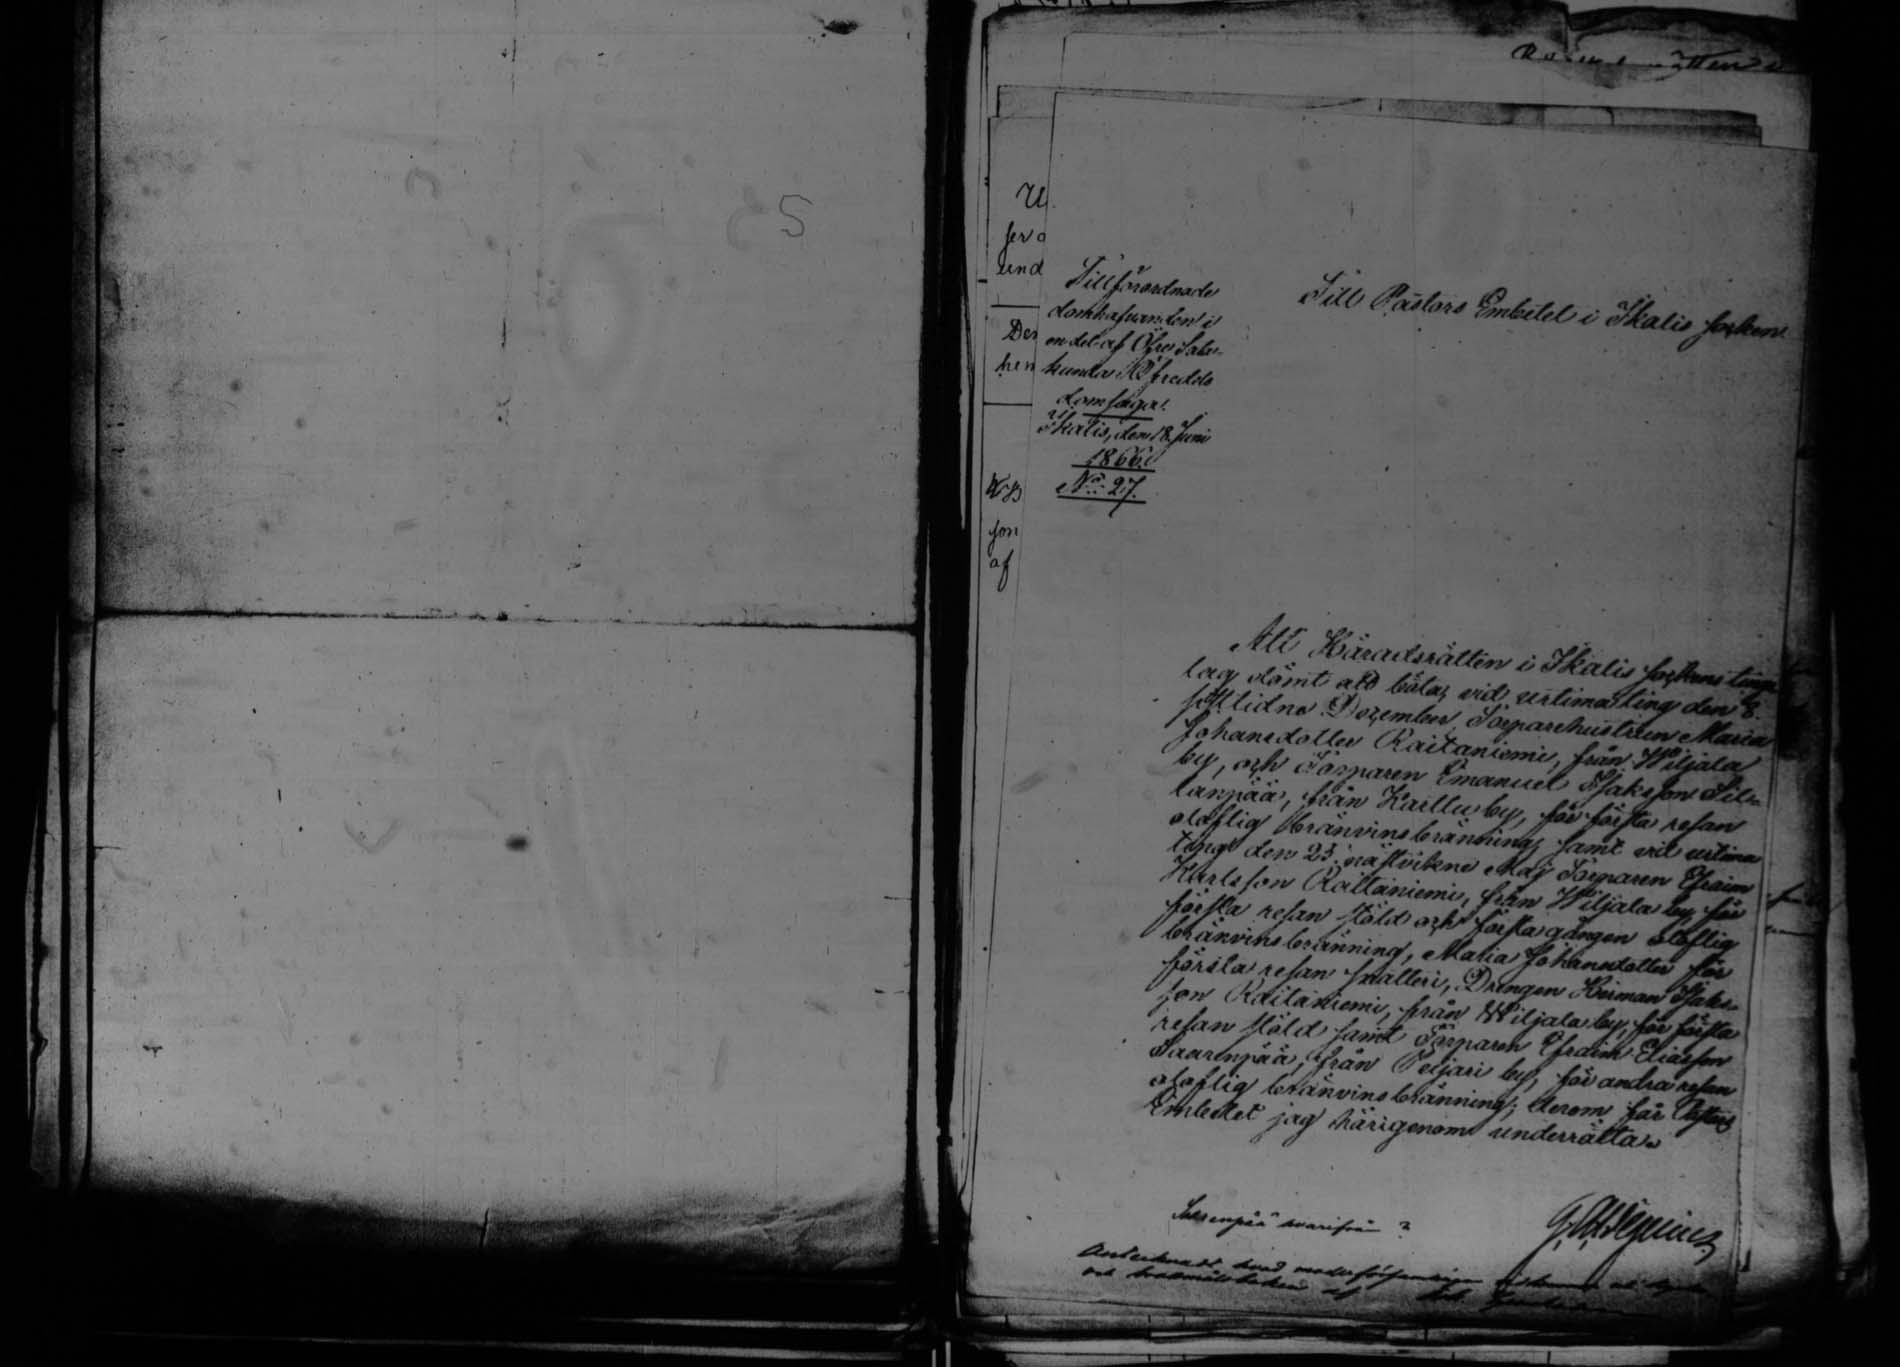 Tillförordnade
domhafvanden i
en del af Öfre Sata-
kunda Häradts
domsaga.
Ikalis, den 18 Juni
1866.
No 27.
Till Pastors Embetet i Ikalis socken.
U
ser o
und
Der
hen
son
af
Att Häradsrätten i Ikalis sockens tings
lag dömt att böta, vid urtima ting den 8.
sistlidne December, Torparehustrun Maria
Johansdotter Raitaniemi, från Wiljala
by, och Torparen Emanuel Isaksson Sil-
lanpää, från Karttu by, för första resan
olaflig bränvinsbränning samt vid urtima
tinget den 25 nästvikne Maj Torparen Efraim
Karlsson Raitaniemi, från Wiljala by för
första resan stöld och första gången olaflig
bränvinsbränning, Maria Johansdotter för
första resan snatteri, Drängen Herman Isaks-
son Raitaniemi, från Wiljala by, för första
resan stöld samt Torparen Efraim Eliasson
Saarenpää, från Peijari by, för andra resan
olaflig bränvinsbränning; derom får Pastors
Embetet jag härigenom underrätta.
Saarenpää hvarifrån?
Antecknadt hvad moderförsamlingen
och